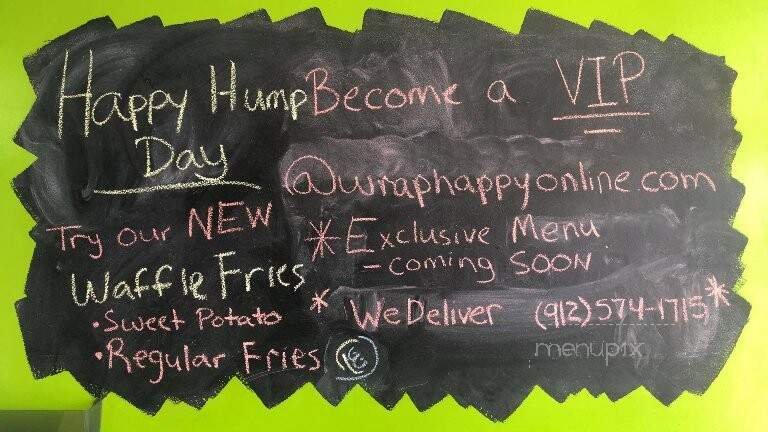 Happy Hump
Day
Try our NEW
Waffle Fries
• Sweet Potato
• Regular Fries
Become a VIP
@wraphappyonline.com
* Exclusive Menu
- coming SOON
* We Deliver (912) 574-1715 *
menupix